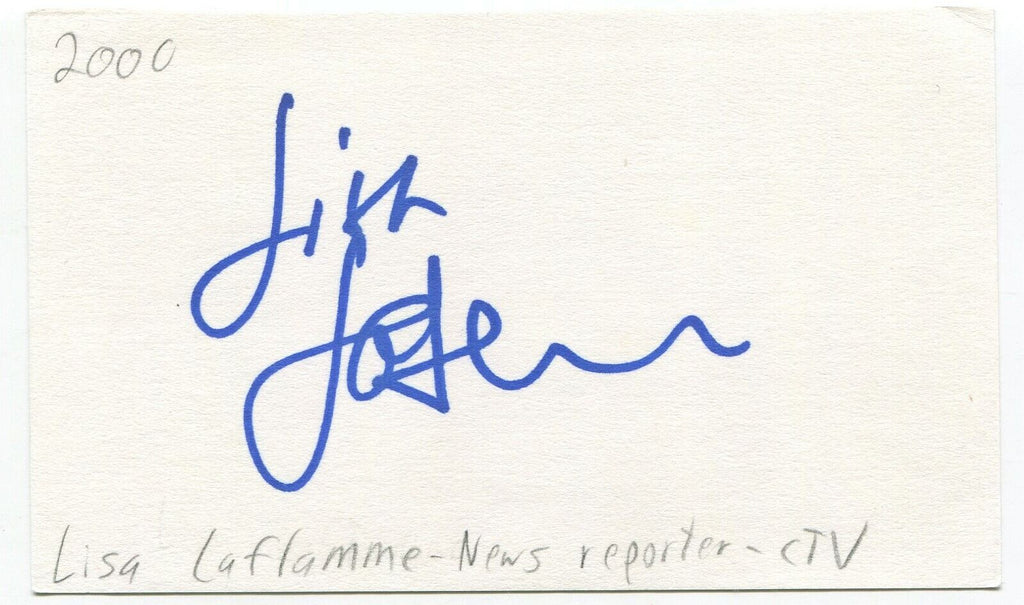 2000
Lisa
Lisa Laflamme - News reporter - CTV